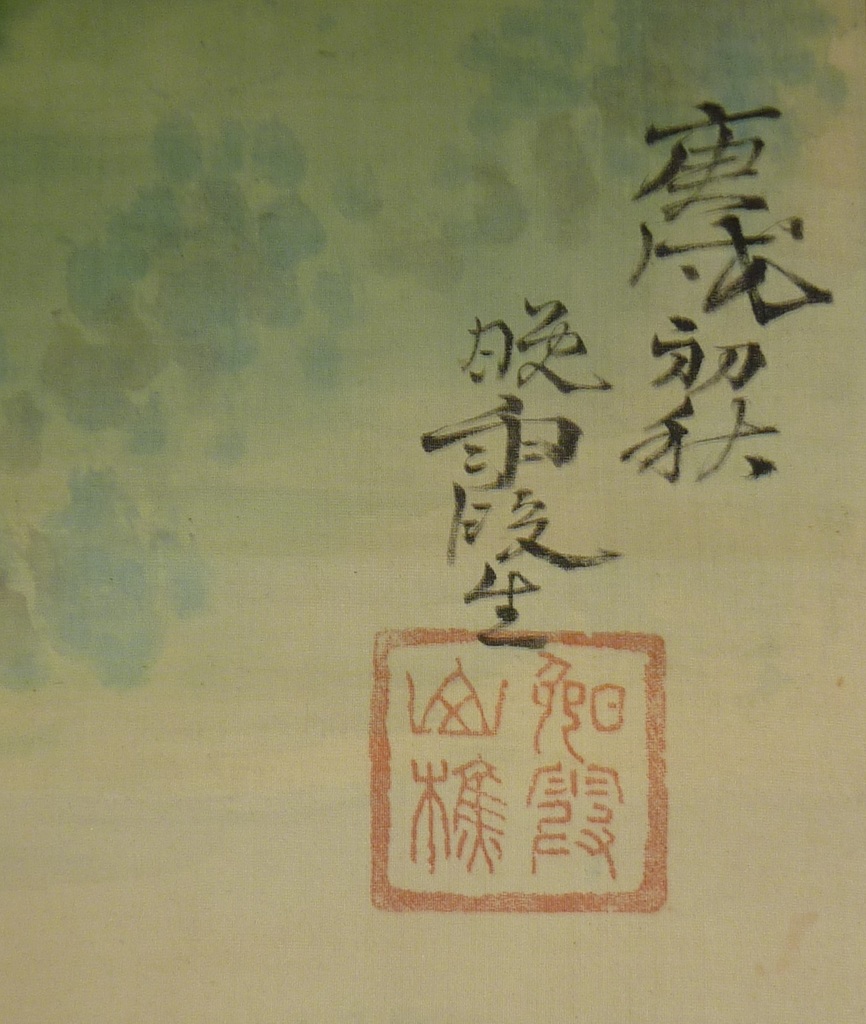 庚戌初秋
晩霞生
晚霞
山樵